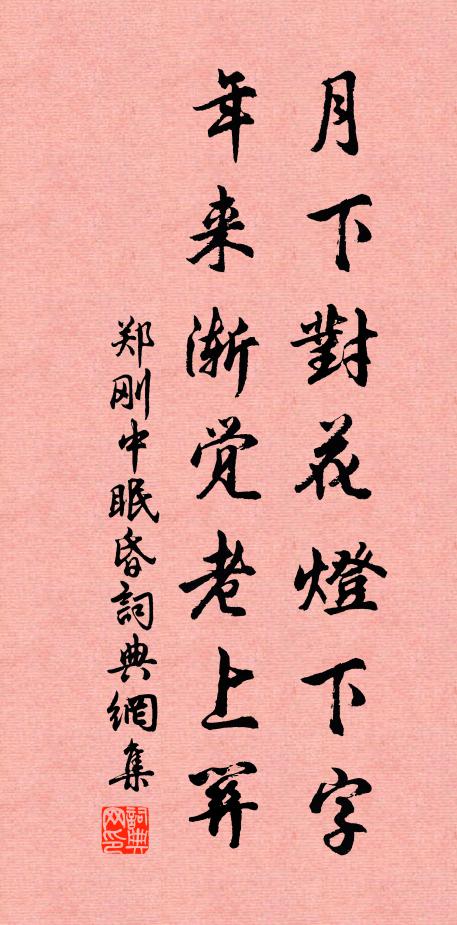 月下對花燈下字
年来渐觉老上昇
郑刚中眠昏詞典網集
詞典网印